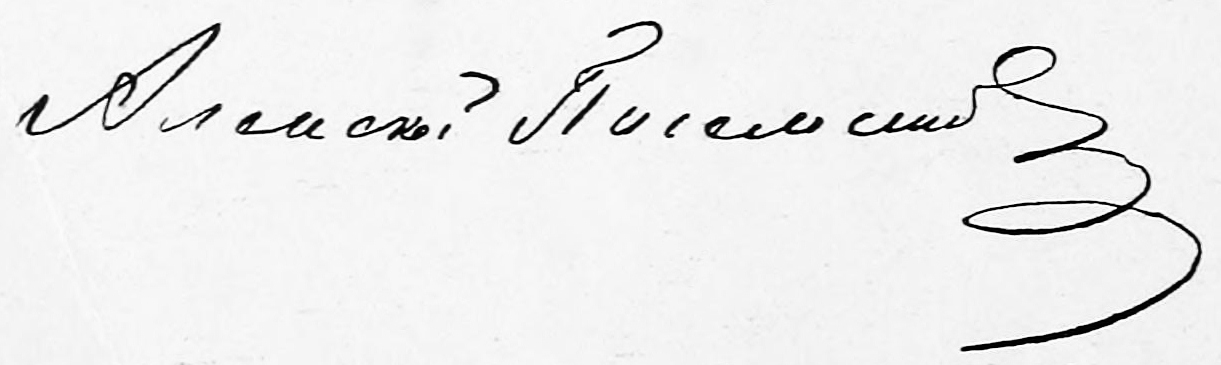 Алексѣй Писемскій